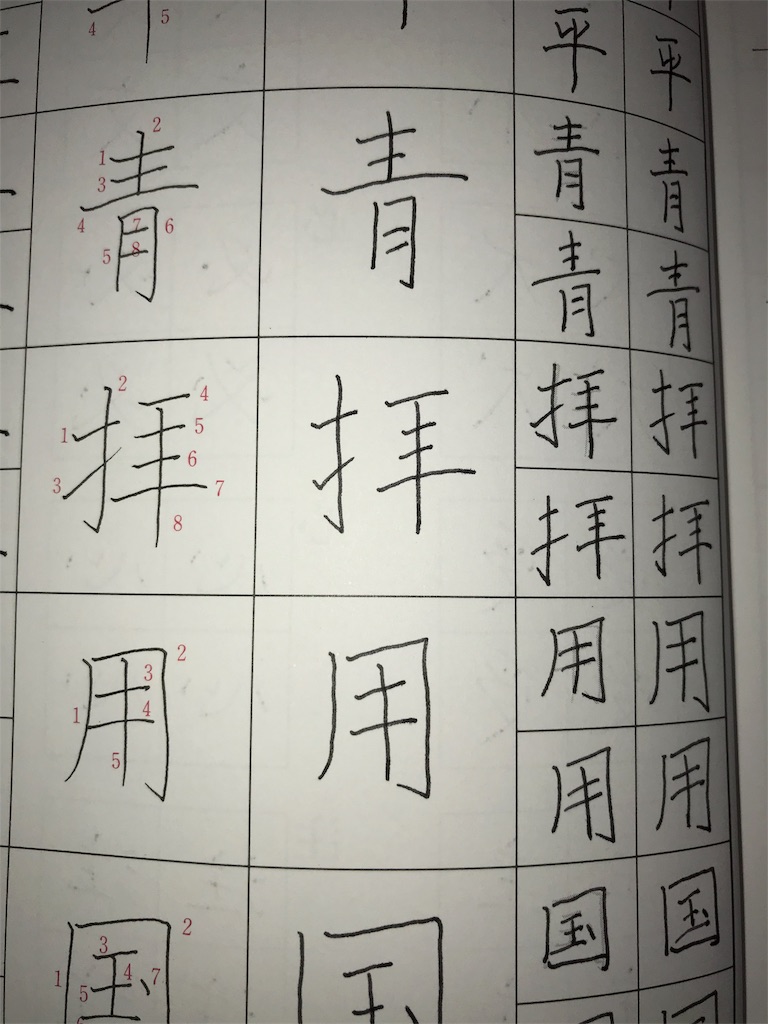 4 5 平 平
2 1 3 4 7 6 5 8 青 青 青 青
青 青
2 4 1 5 6 3 7 8 拝 拝 拝 拝
拝 拝
2 3 1 4 5 用 用 用 用
用 用
2 3 1 4 7 5 国 国 国 国